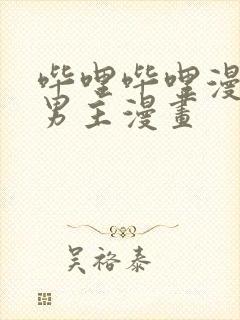 哔哩哔哩漫
男主漫畫
吴裕泰